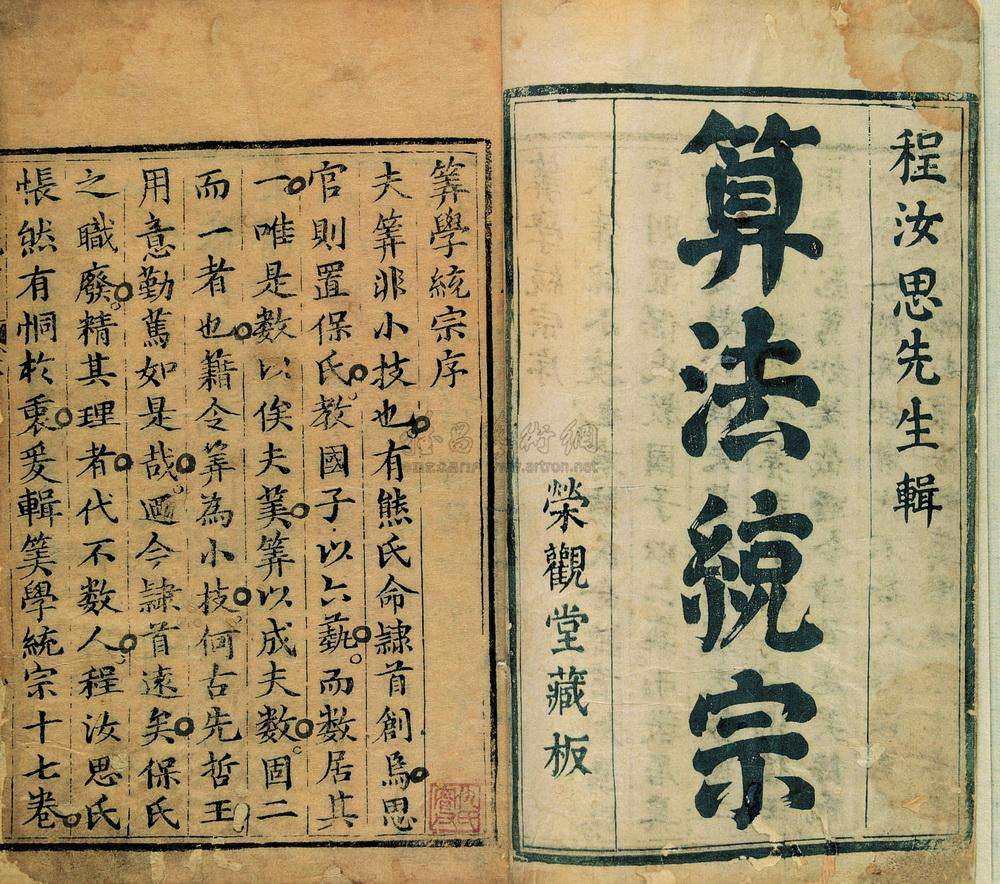 程汝思先生輯
算法統宗
榮觀堂藏板
筭學統宗序
夫筭非小技也有熊氏命隷首創爲思
官則置保氏教國子以六藝而數居其
一唯是數以俟夫筭筭以成夫數固二
而一者也藉令筭為小技何古先哲王
用意勤篤如是哉迺今隷首遠矣保氏
之職廢精其理者代不數人程汝思氏
悵然有恫於衷爰輯筭學統宗十七卷
www.artron.net